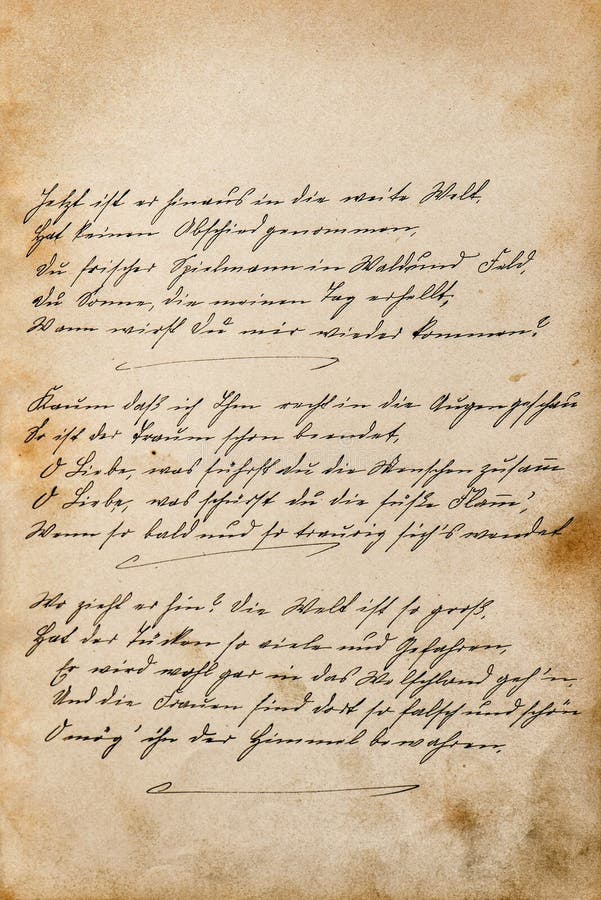 Jetzt ist er hinaus in die weite Welt,
Hat keinen Abschied genommen,
Du frischer Spielmann in Wald und Feld,
Du Sonne, die meinen Tag erhellt,
Wann wirst Du mir wieder kommen?
Kaum daß ich Ihm recht in die Augen geschau
So ist der Traum schon beendet,
O Liebe, was führst du die Menschen zusam̅
O Liebe, was schürst du die süße Flam̅',
Wenn so bald und so traurig sich's wendet
Wo zieht er hin? Die Welt ist so groß,
Hat der Tücken so viele und Gefahren,
Er wird wohl gar in das Welschland geh'n,
Und die Frauen sind dort so falsch und schön
O mög' ihn der Himmel bewahren.